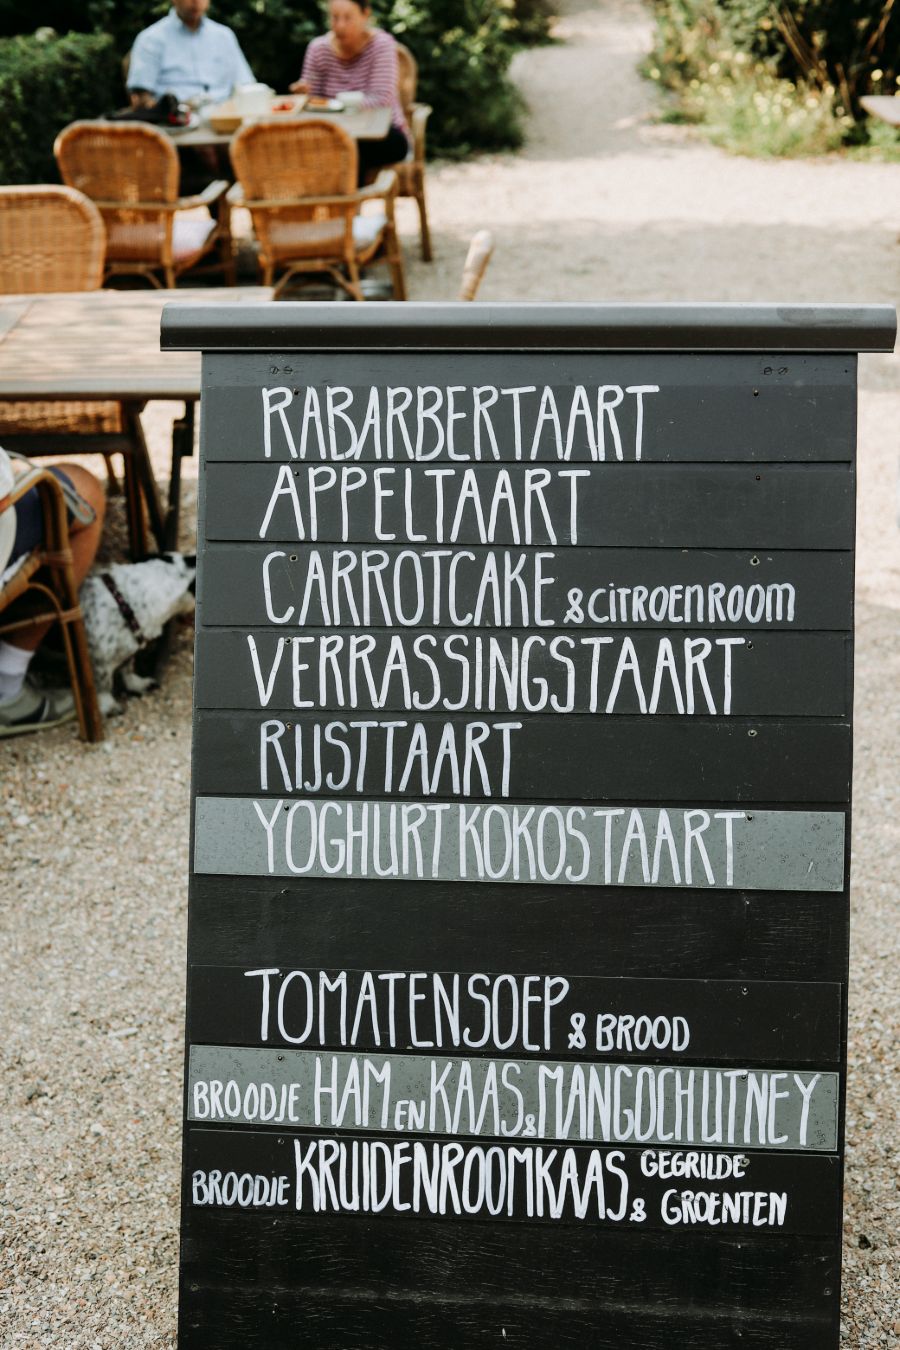 RABARBERTAART
APPELTAART
CARROTCAKE & CITROENROOM
VERRASSINGSTAART
RIJSTTAART
YOGHURT KOKOSTAART
TOMATENSOEP & BROOD
BROODJE HAM EN KAAS & MANGOCHUTNEY
BROODJE KRUIDENROOMKAAS & GEGRILDE GROENTEN